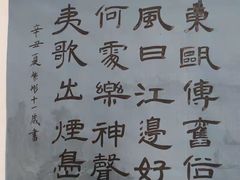 東甌傳舊俗
風日江邊好
何處樂神聲
夷歌出煙島
辛丑夏
十一歲書